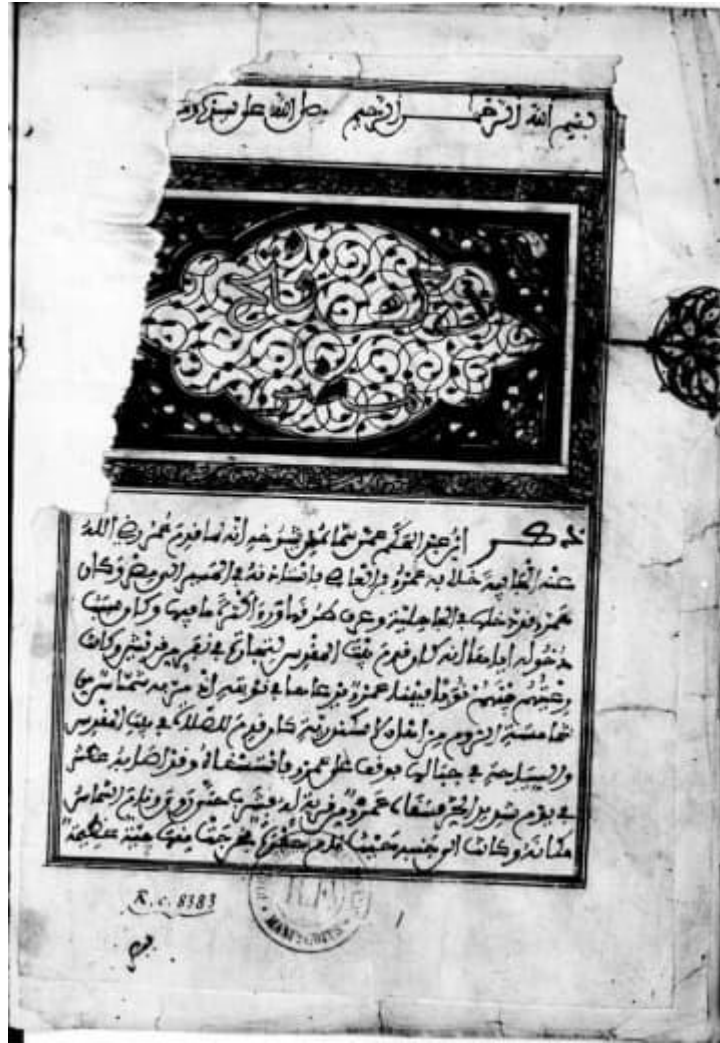 بسم الله الرحمن الرحيم صلى الله على
ذكر ابن عبد الحكم عمن سماه من شيوخه انه لما قدم عمر رضي الله
عنه الجابية خلا به عمرو بن العاصي واستاذنه في المسير الى مصر وكان
عمرو قد دخلها في الجاهلية وعرف طرقها وراى اكثر ما فيها وكان سبب
دخوله اياها انه كان قدم بيت المقدس لتجارة في نفر من قريش وكانت
رعيتهم ابلهم نوبا فبينا عمرو يرعاها في نوبته اذ مر به شماس من
شمامسة الروم من اهل الاسكندرية كان قدم للصلاة في بيت المقدس
والسياحة في جبالها فوقف على عمرو فاستسقاه وقد اصابه عطش
في يوم شديد الحر فسقاه عمرو من قربة له فشرب حتى روي ونام الشماس
مكانه وكانت الى جنبه حيث نام حفرة فخرجت منها حية عظيمة
R.c. 8383
R.F.
MANUSCRITS